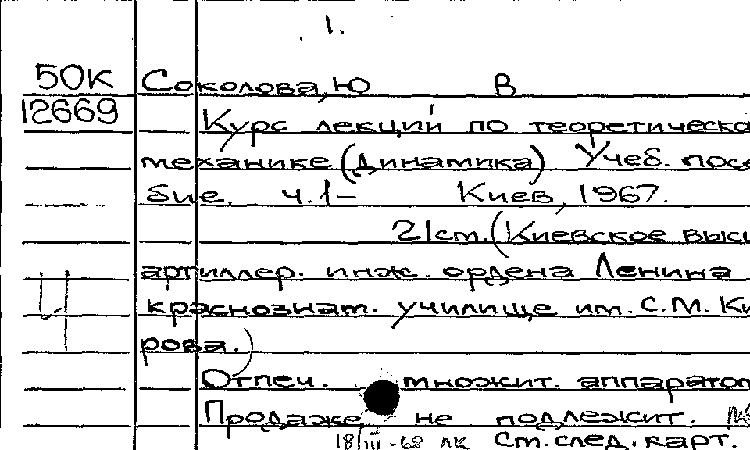 1.
50К Соколова, Ю В
12669 Курс лекций по теоретическо
механике (динамика) Учеб. посо
бие. ч.1- Киев, 1967.
21см. (Киевское высш
артиллер. инж. ордена Ленина
краснознам. училище им. С.М. Ки
рова.)
Отпеч. множит. аппаратом
Продаже не подлежит.
18/III-68 лк См. след. карт.